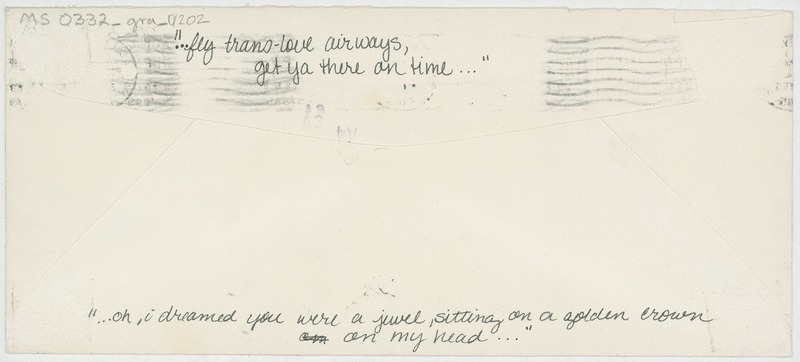 MS 0332_gra_0202
"...fly trans-love airways,
get ya there on time ..."
"...oh, i dreamed you were a jewel, sitting on a golden crown
on my head ..."